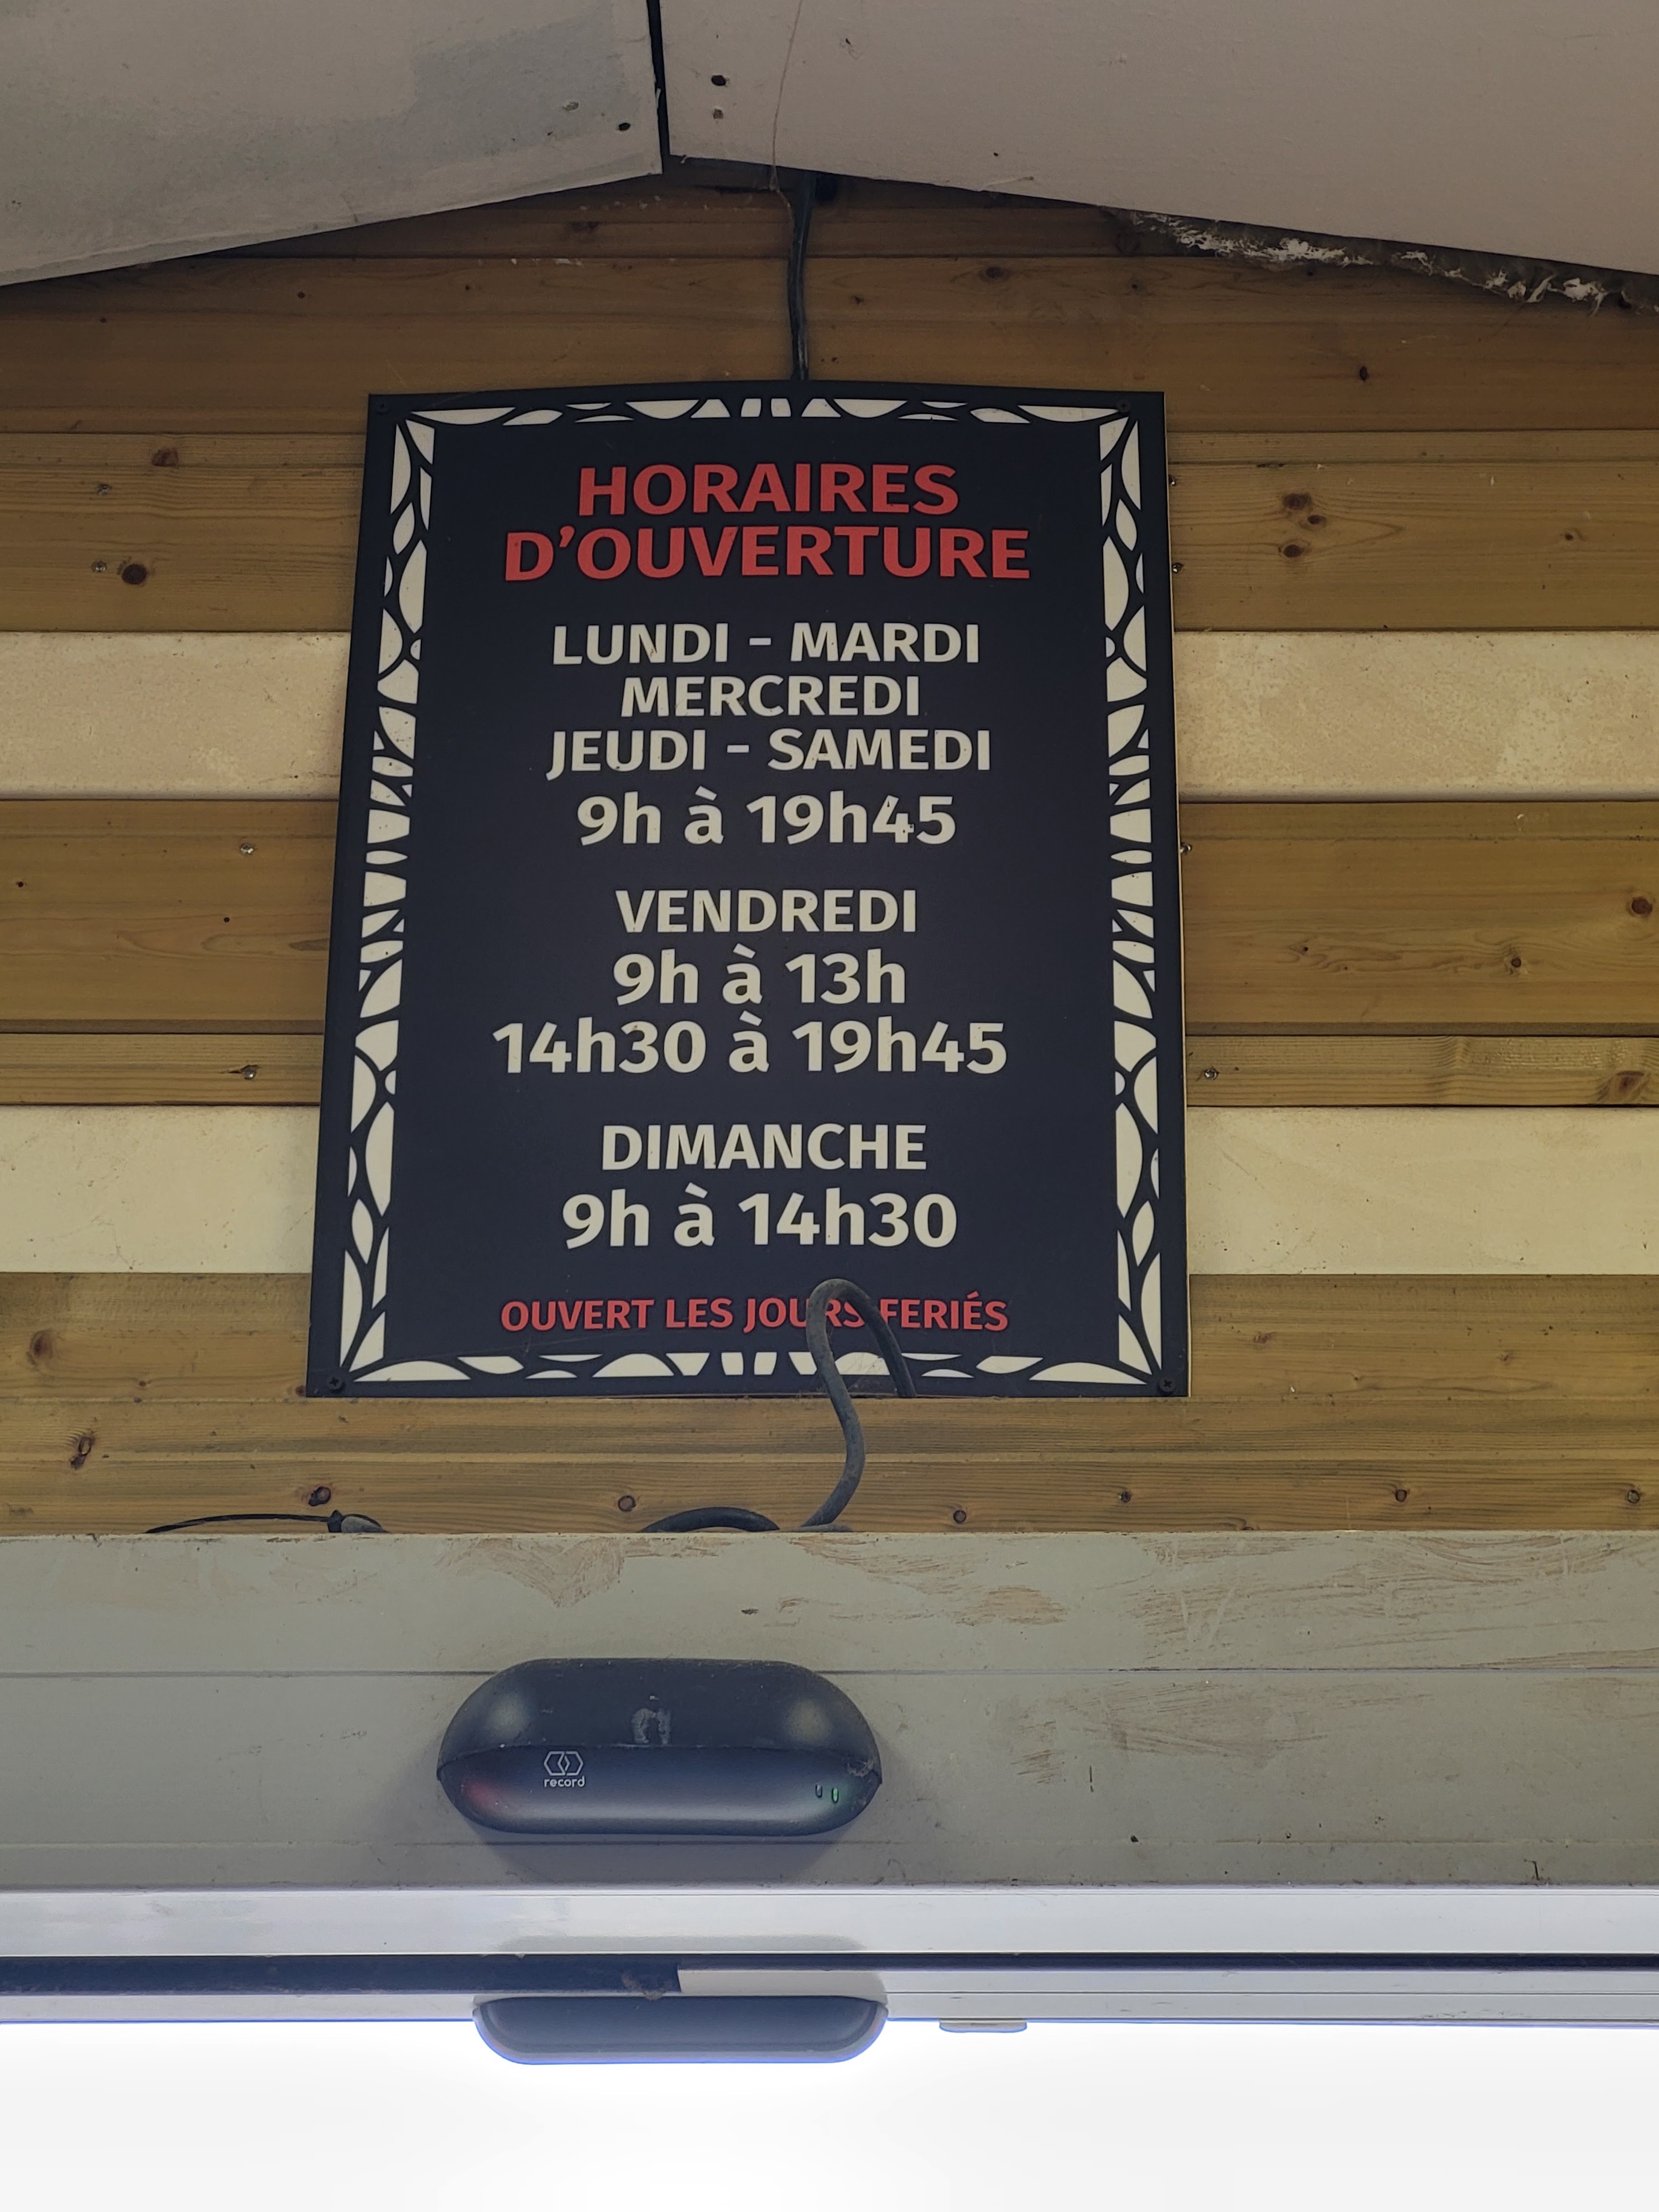 HORAIRES
D'OUVERTURE
LUNDI - MARDI
MERCREDI
JEUDI - SAMEDI
9h à 19h45
VENDREDI
9h à 13h
14h30 à 19h45
DIMANCHE
9h à 14h30
OUVERT LES JOURS FERIÉS
record